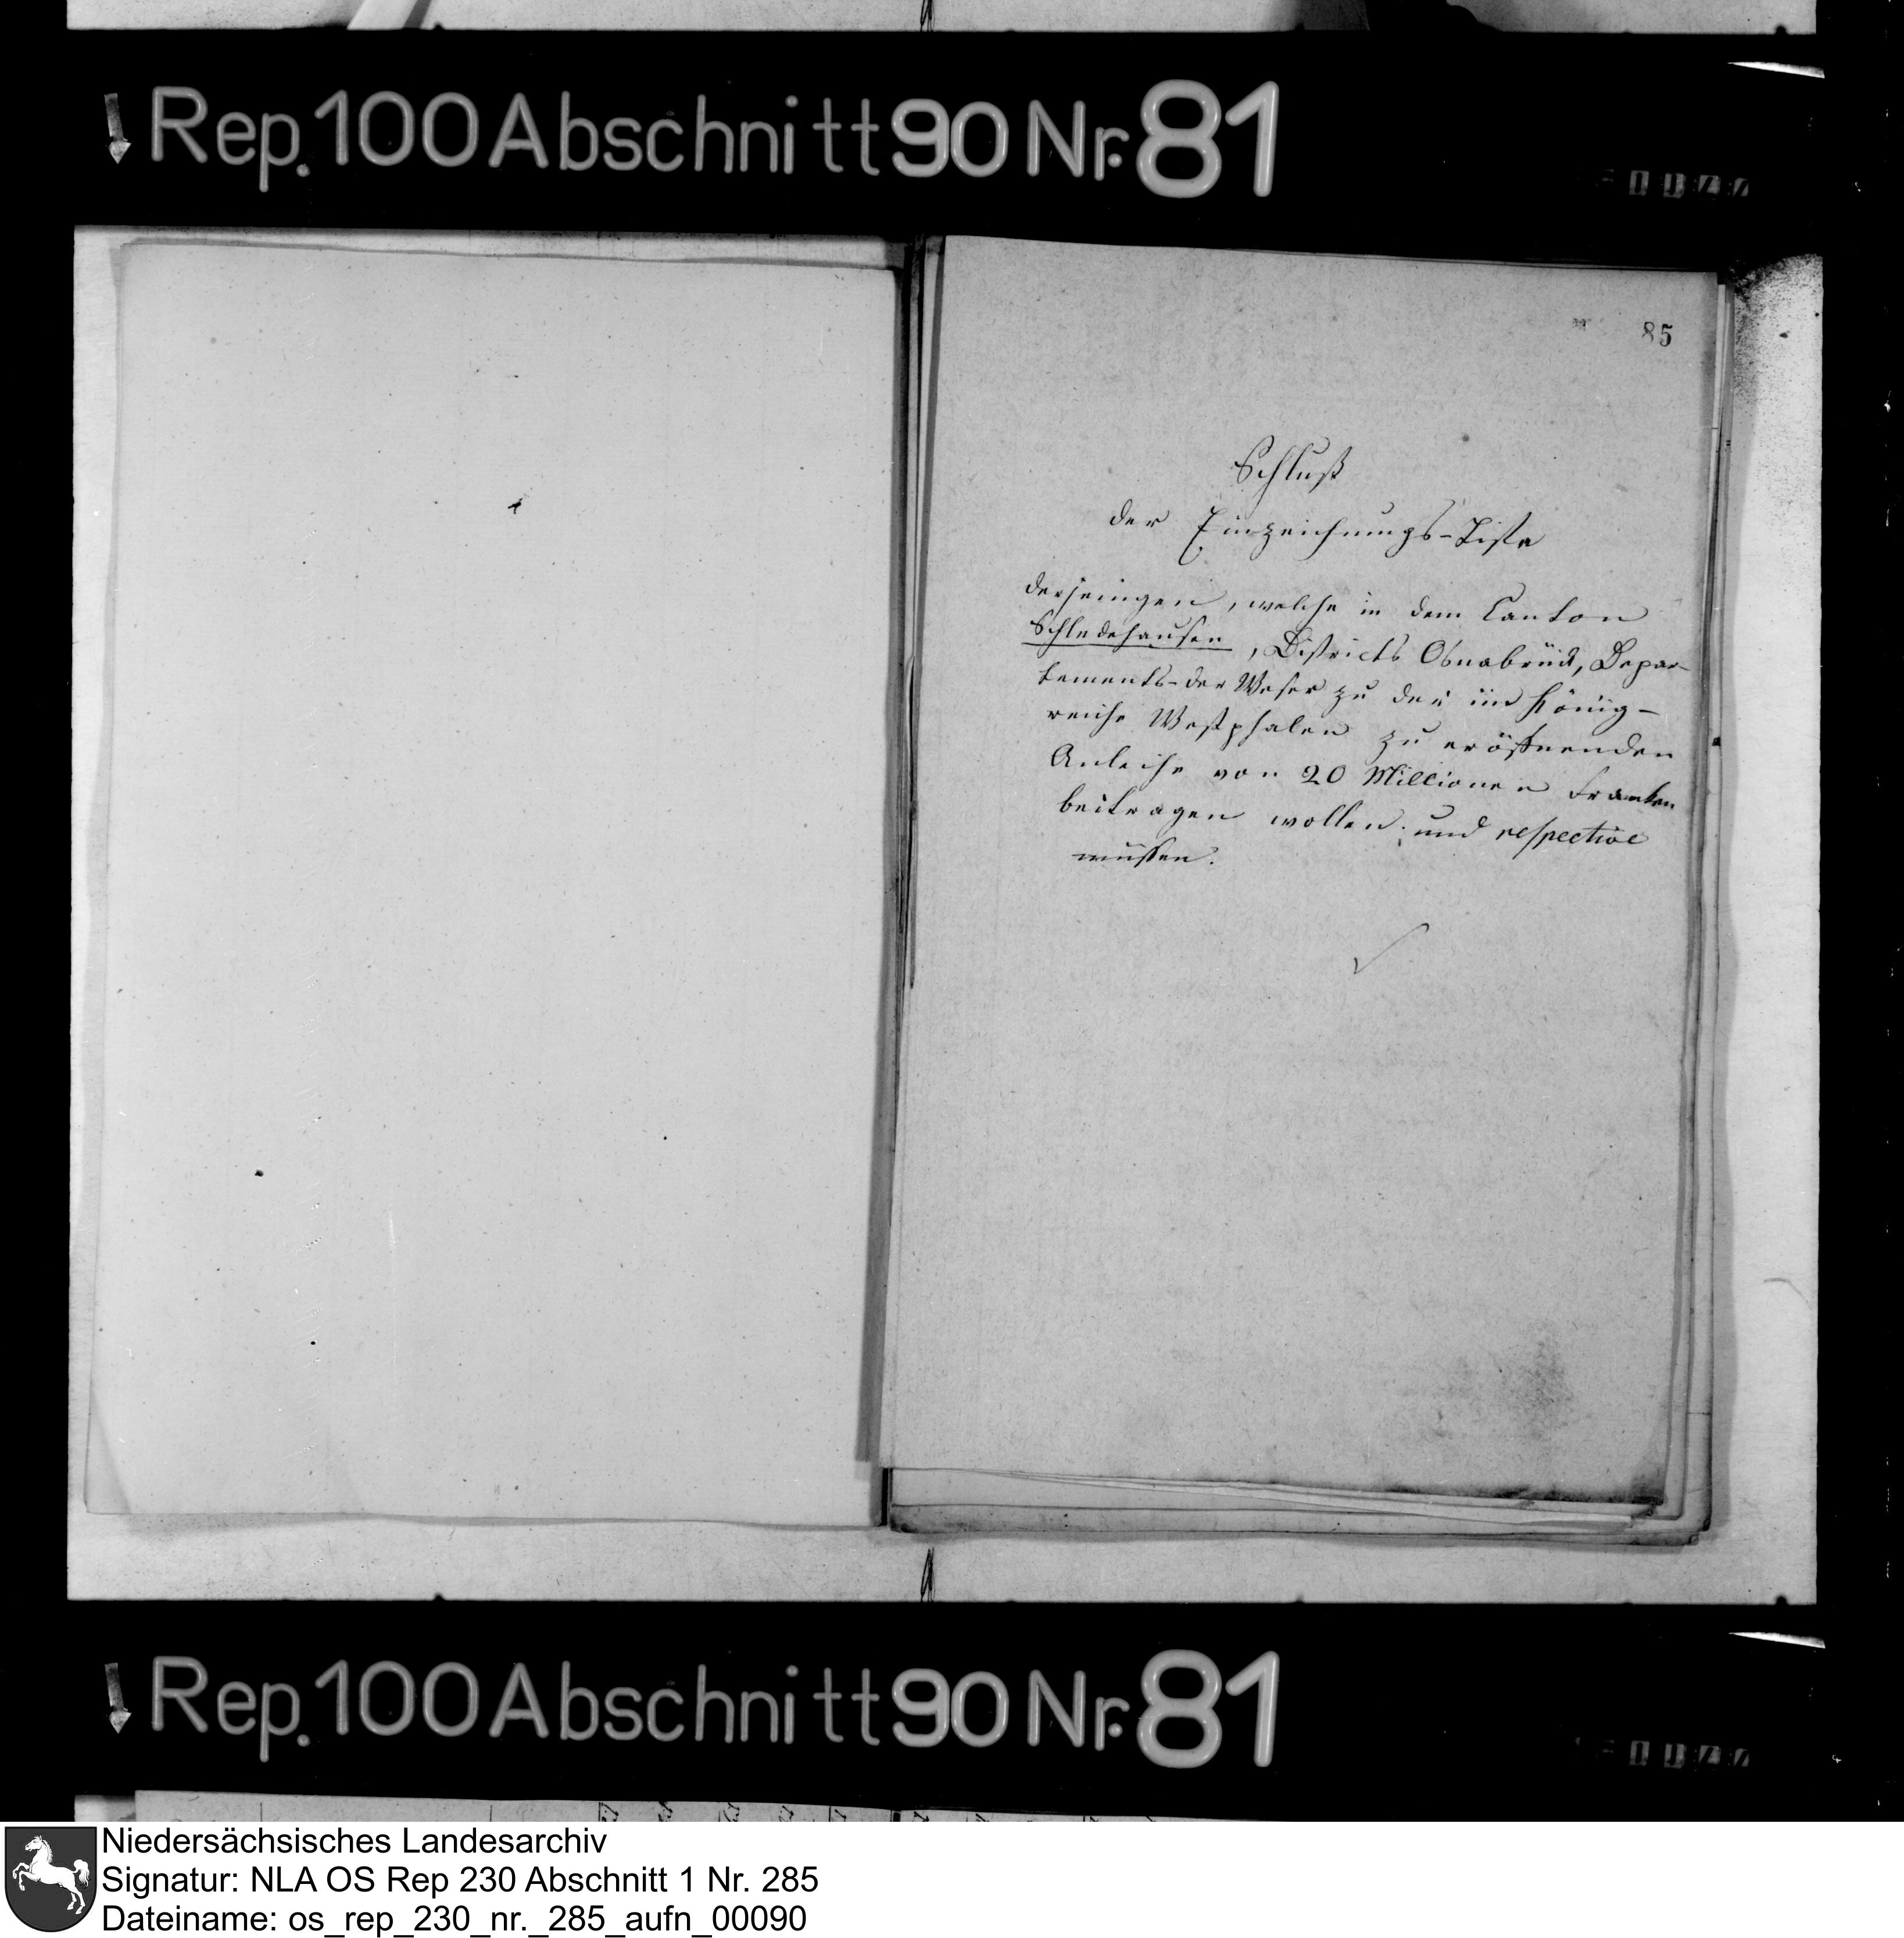 Rep. 100 Abschnitt 90 Nr. 81
85
Schluß
der Einzeichnungs-Liste
derjenigen, welche in dem Canton
Schledehausen, Districts Osnabrück, Depar-
tements-der Weser zu der im König-
reiche Westphalen zu eröffnenden
Anleihe von 20 Millionen Franken
beitragen wollen, und respective
müssen.
Rep. 100 Abschnitt 90 Nr. 81
Niedersächsisches Landesarchiv
Signatur: NLA OS Rep 230 Abschnitt 1 Nr. 285
Dateiname: os_rep_230_nr._285_aufn_00090